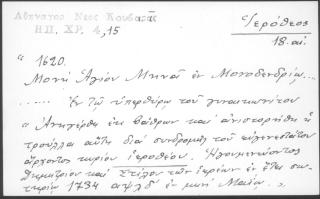 Αθηναγορ Νεος Κουβαρᾶς
ΗΠ. ΧΡ. 4, 15
Ἱερόθεος
18. αἰ.
" 1620.
Μονὴ Ἁγίου Μηνᾶ ἐν Μονοδενδρίῳ...
...... Ἐν τῷ ὑπερθύρῳ τοῦ γυναικωνίτου
" Ἀνηγέρθη ἐκ βάθρων καὶ ἀνιστορήθη ἡ
τρούλλα αὕτη διὰ συνδρομῆς τοῦ εὐγενεστάτου
ἄρχοντος κυρίου Ἱεροθέου. Ἡγουμενεύοντος
Δημητρίου καὶ τῶν ἱερέων ἐν ἔτει σω-
τηρίῳ 1734 αψλδ' ἐν μηνὶ Μαΐῳ. "